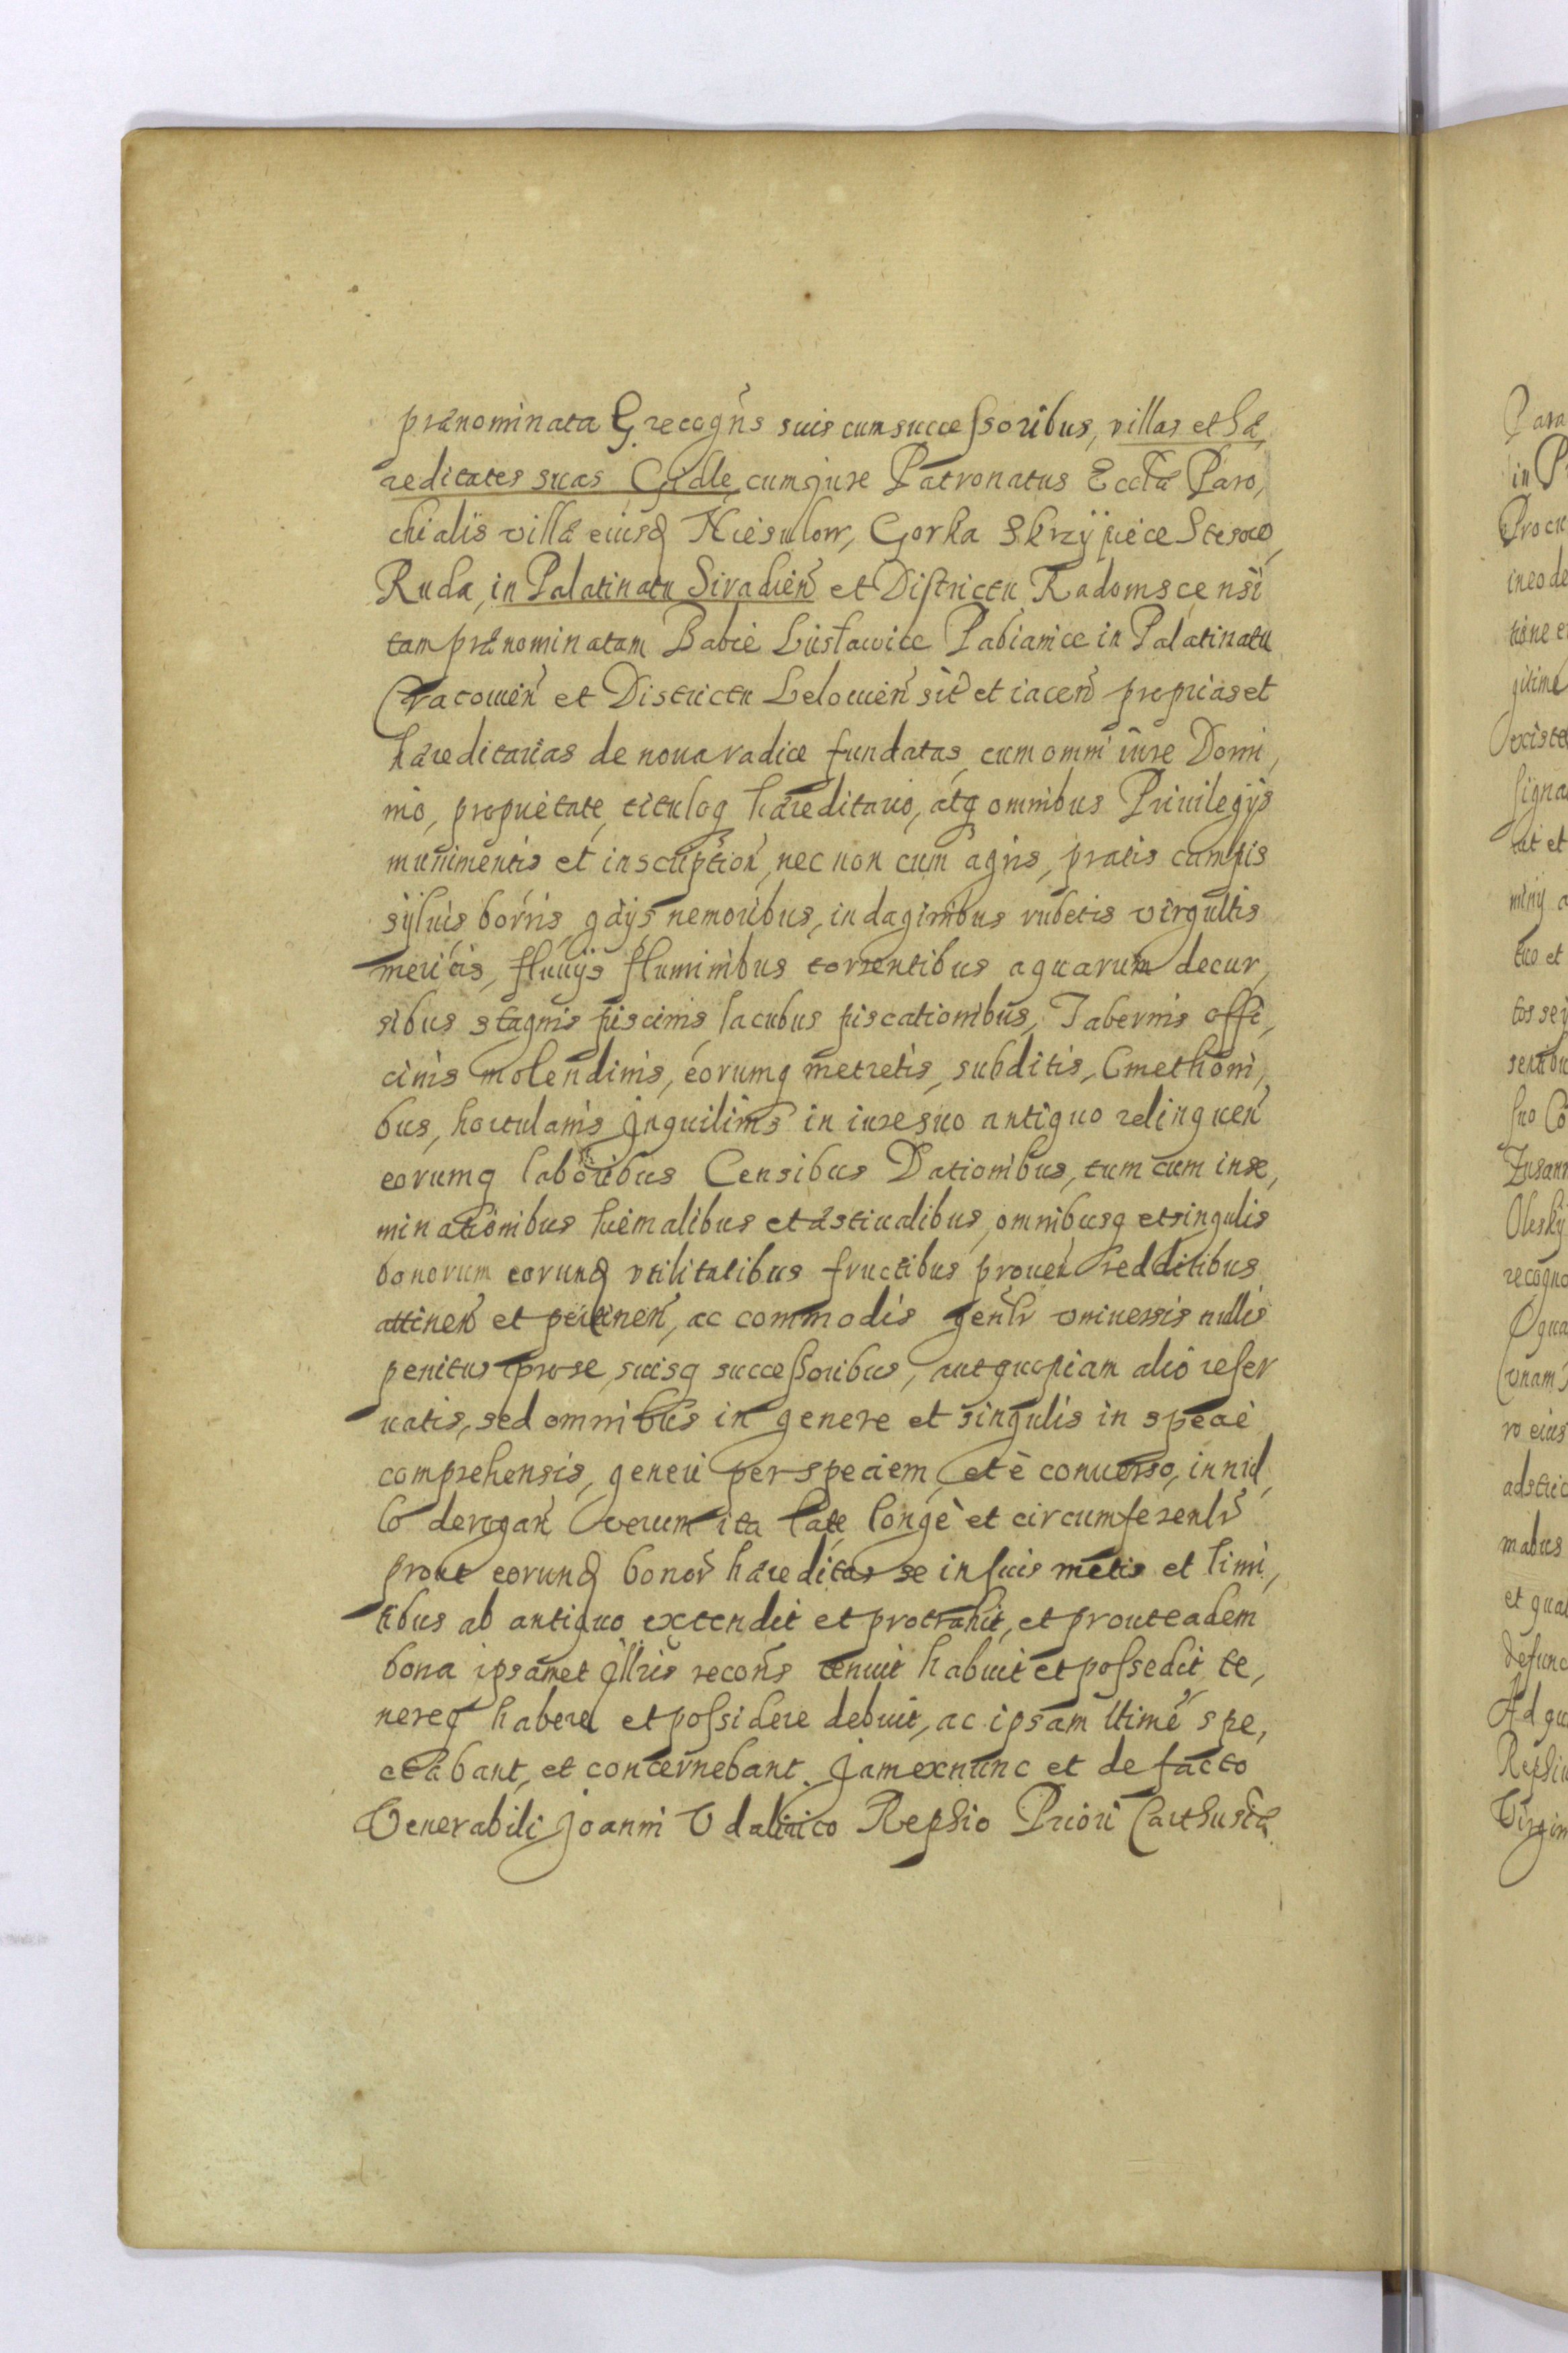 prænominata G. recogñs suis cum successoribus, villas et hæ,
reditates suas Gidle, cum jure Patronatus Ecclæ Paro,
chialis villæ eiusq Niesulow, Gorka Skrzypiece
Ruda, in Palatinatu Siradien̄ et Districtu Radomscensi
tam prænominatam Babie Lustawice Pabianice in Palatinatu
Cracouien̄ et Districtu Lelouien̄ sit̄ et iacen̄ proprias et
hæreditarias de noua radice fundatas, cum omni iure Domi,
nio, proprietate, tituloq hæreditario, atq omnibus Priuilegijs
munimentis et inscription̄, nec non cum agris, pratis campis
syluis borris, gaijs nemoribus, indaginibus rubetis virgultis
mericis, fluuijs fluminibus torrentibus aquarum decur,
sibus stagnis piscinis lacubus piscationibus, Tabernis offi,
cinis molendinis, eorumq metretis, subditis, Cmethoni,
bus, hortulanis Inquilinis in iure suo antiquo relinquen̄
eorumq laboribus Censibus Dationibus, tum cum inse,
minationibus hiemalibus et æstiualibus, omnibusq et singulis
bonorum eorund vtilitatibus fructibus prouen̄ redditibus
attinen̄ et pertinen̄, ac commodis gen̄lr vniuersis nullis
penitus pro se, suisq successoribus, aut quopiam alio reser
uatis, sed omnibus in genere et singulis in specie
comprehensis, generi per speciem, et è conuerso, in nul,
lo derogan̄ verum ita late, longè et circumferenlr̄
prout eorund bonor̄ hæreditas se in suis metis et limi,
tibus ab antiquo extendit et protrahit, et prout eadem
bona ipsamet Illris recon̄s tenuit habuit et possedit, te,
nereq habere et possidere debuit, ac ipsam ltimè spe,
ctabant, et concernebant. Jam ex nunc et de facto
Venerabili Joanni Vdalrico Rephio Priori Carthusiæ